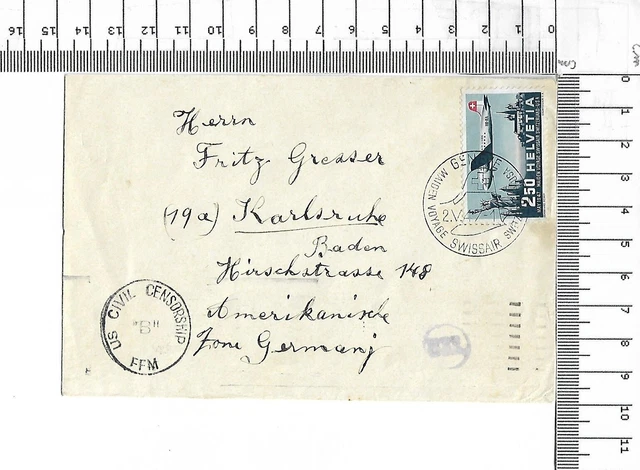 Herrn
Fritz Gresser
(19a) Karlsruhe
Baden
Hirschstrasse 148
Amerikanische
Zone Germany
US CIVIL CENSORSHIP
"B"
FFM
HELVETIA
2.50
GENÈVE
2.V.47
MAIDEN VOYAGE SWISSAIR
16 15 14 13 12 11 10 9 8 7 6 5 4 3 2 1 0
cm
cm
0
1
2
3
4
5
6
7
8
9
10
11